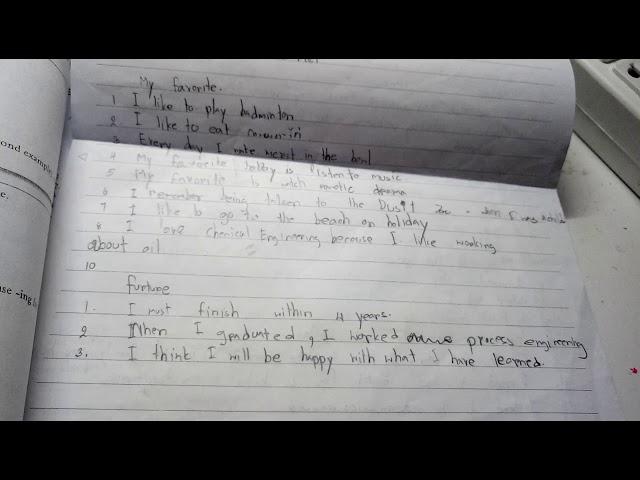 My favorite.
1 I like to play badminton
2 I like to eat
3 Every day I make merit in the
4 My favorite hobby is listen to music
5 My favorite is watch drama
6 I remember being taken to the Dusit
7 I like to go to the beach on holiday
8 I love Chemical Engineering because I like working
about oil
10
furture
1. I must finish within 4 years.
2 When I graduated, I worked process engineering
3. I think I will be happy with what I have learned.
ond example
se -ing